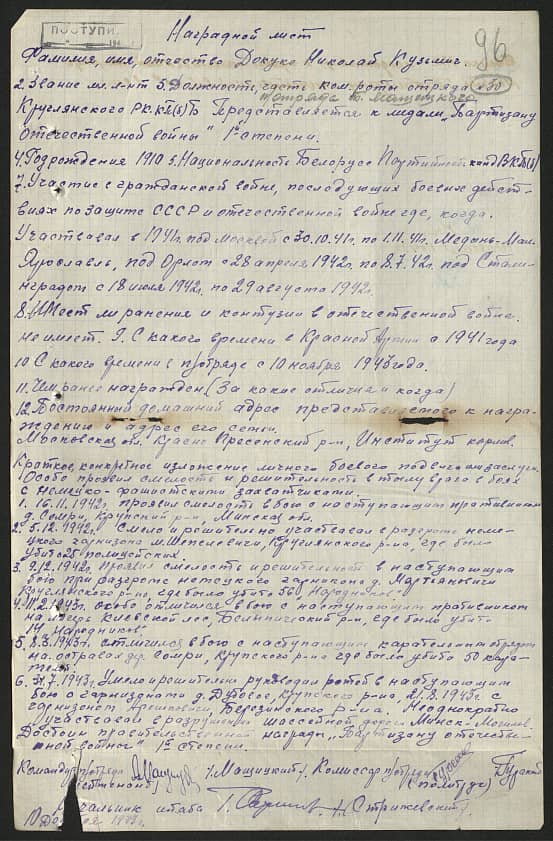 ПОСТУПИ
Наградной лист
96
Фамилия, имя, отчество Докуко Николай Кузьмич.
2. Звание мл. л-нт 3. Должность, часть ком. роты отряда №30
п/отряда т. Мащицкого
Круглянского РК.КП(б)Б Представляется к медали "Партизану
Отечественной войны" 1ой степени.
4. Год рождения 1910 5. Национальность Белорусс Партийность канд ВКП(б)
7. Участие в гражданской войне, последующих боевых дейст-
виях по защите СССР и отечественной войне где, когда.
Участвовал в 1941г. под Москвой с 30.10.41г. по 1.11.41г. Медынь-Мал.
Ярославль, под Орлом с 28 апреля 1942г. по 8.7.42г. под Стали-
нградом с 18 июня 1942г. по 29 августа 1942г.
8. Имеет ли ранения и контузии в отечественной войне.
не имеет. 9. С какого времени в Красной Армии с 1941 года
10 С какого времени в п/отряде с 10 ноября 1942 года.
11. Чем ранее награжден (За какие отличия и когда)
12. Постоянный домашний адрес представляемого к награ-
ждению и адрес его семьи.
Московская обл. Красно Пресенский р-н, Институт кормов.
Краткое конкретное изложение личного боевого подвига или заслуг.
Особо проявил смелость и решительность в тылу врага в боях
с немецко-фашистскими захватчиками.
1. 16.11.1942г. проявил смелость в бою с наступающим противником
д. Сомры, Крупский р-н Минской обл.
2. 5.12.1942г. Смело и решительно участвовал в разгроме неме-
цкого гарнизона м. Шепелевичи, Круглянского р-на, где было
убито 25 полицейских.
3. 9.12.1942г. Проявил смелость и решительность в наступающем
бою при разгроме немецкого гарнизона д. Мартьяновичи
Круглянского р-на, где было убито 56 "Народников"
4. 11.2.1943г. особо отличился в бою с наступающим противником
на лагерь Клевской лес, Белыничский р-н, где было убито
14 народников.
5. 8.3.1943г. отличился в бою с наступающим карательным отрядом
на островах дер Сомри, Крупского р-на где было убито 50 кара-
телей.
6. 31.7.1943г. Умело и решительно руководил ротой в наступающем
бою с гарнизонами д. Дубовое, Крупского р-на, 21.8.1943г с
гарнизоном Орешковичи Березинского р-на. Неоднократно
участвовал в разрушении шоссейной дороги Минск-Могилев.
Достоин правительственной награды "Партизану отечестве-
нной войны" 1ой степени.
Командир п/отряда /Мащицкий/. Комиссар п/отряда
(политрук)
Начальник штаба /Стрижевский/.